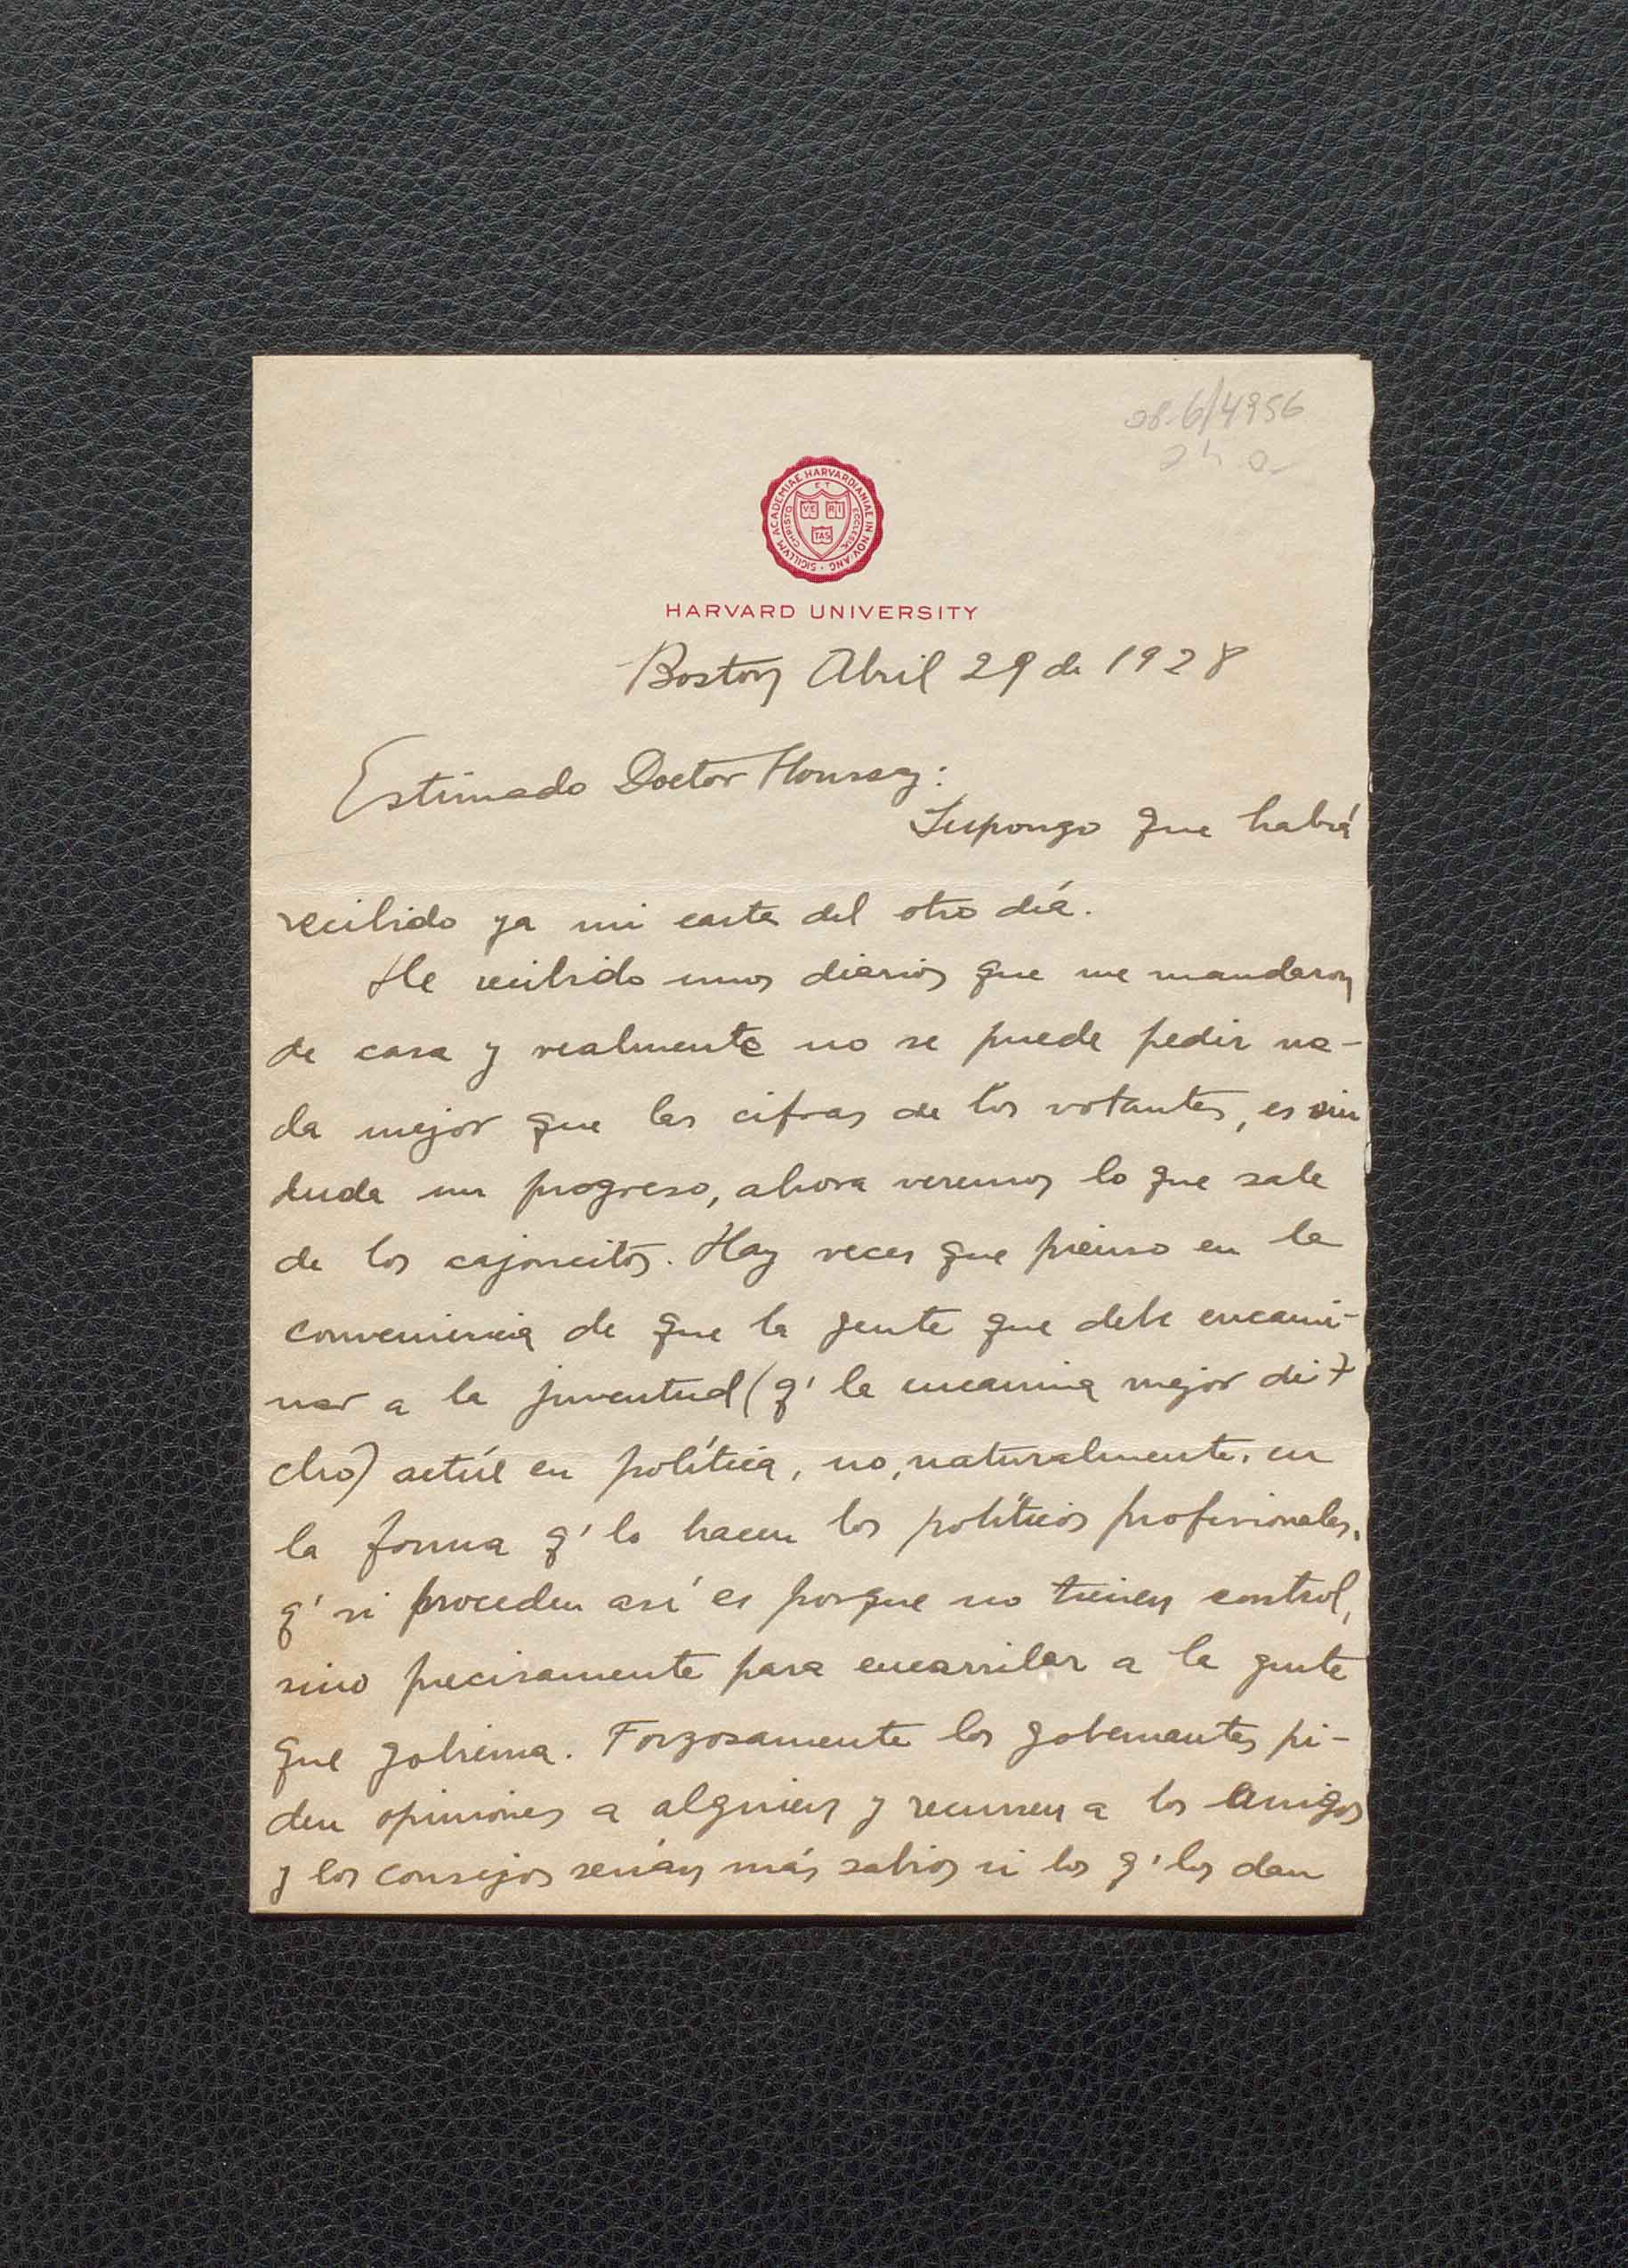 28-6/4956
SIGILLVM ACADEMIAE HARVARDIANAE IN NOV. ANG.
CHRISTO ET ECCLESIAE
VE RI
TAS
HARVARD UNIVERSITY
Boston Abril 29 de 1928
Estimado Doctor Houssay:
Supongo que habrá
recibido ya mi carta del otro día.
He recibido unos diarios que me mandaron
de casa y realmente no se puede pedir na-
da mejor que las cifras de los votantes, es sin
duda un progreso, ahora veremos lo que sale
de los cajoncitos. Hay veces que pienso en la
conveniencia de que la gente que debe encami-
nar a la juventud (q' la encamina mejor di-
cho) actúe en política, no, naturalmente, en
la forma q' lo hacen los políticos profesionales,
q' si proceden así es porque no tienen control,
sino precisamente para encarrilar a la gente
que gobierna. Forzosamente los gobernantes pi-
den opiniones a alguien y recurren a los amigos
y los consejos serían más sabios si los q' los dan